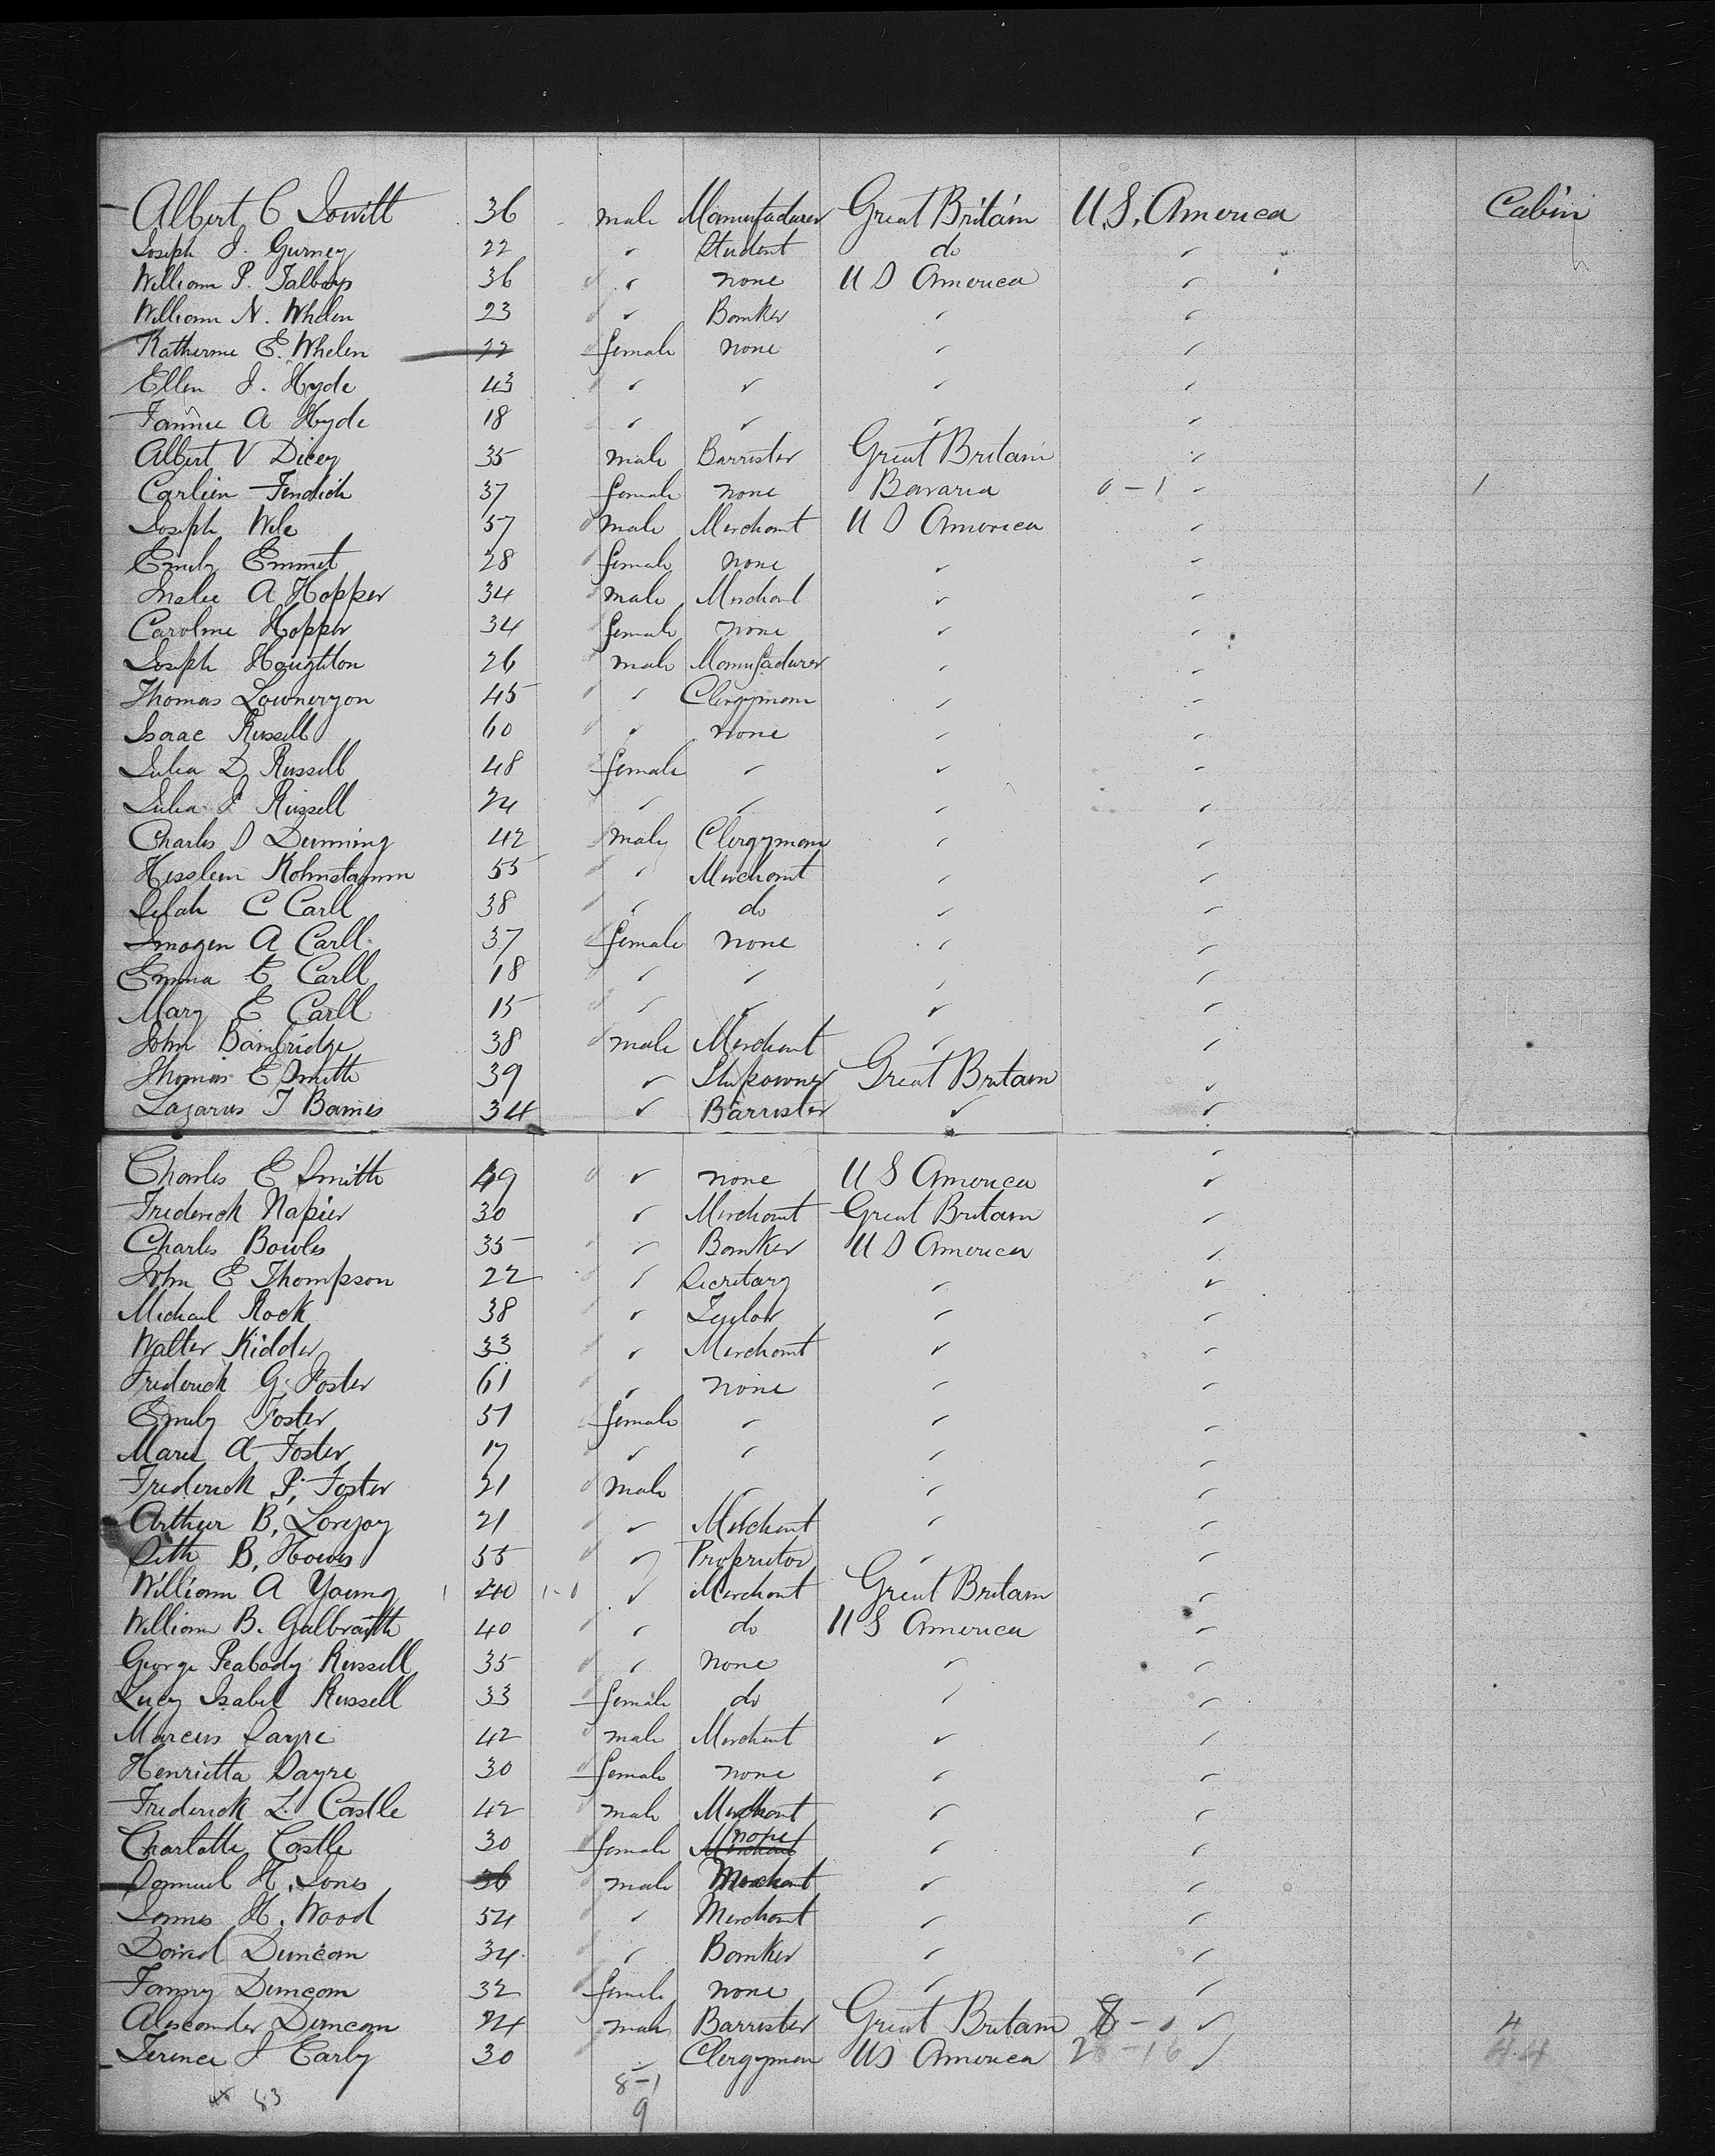 Albert C Jowitt 36 male Manufacturer Great Britain U.S. America Cabin
Joseph J. Gurney 22 " Student do "
William P. Talboys 36 " none U S America "
William N. Whelen 23 " Banker " "
Katherine E. Whelen 22 female none " "
Ellen J. Hyde 43 " " " "
Fannie A Hyde 18 " " " "
Albert V Dicey 35 male Barrister Great Britain "
Carlien Fendich 37 female none Bavaria 0-1 " 1
Joseph Wile 57 male Merchant U S America "
Emily Emmet 28 female none " "
Inslee A Hopper 34 male Merchant " "
Caroline Hopper 34 female none " "
Joseph Houghton 26 male Manufacturer " "
Thomas 45 " Clergyman " "
Isaac Russell 60 " none " "
Julia D Russell 48 female " " "
Julia F Russell 24 " " " "
Charles S Dunning 42 male Clergyman " "
Hesslein Kohnstamm 55 " Merchant " "
Selah C Carll 38 " do " "
Imogen A Carll 37 female none " "
Emma E Carll 18 " " " "
Mary E Carll 15 " " " "
John Bainbridge 38 male Merchant " "
Thomas E Smith 39 " Shipowner Great Britain "
Lazarus J Barnes 34 " Barrister " "
Charles E Smith 49 " none U S America "
Frederick Napier 30 " Merchant Great Britain "
Charles Bowles 35 " Banker U S America "
John E Thompson 22 " Secretary " "
Michael Rock 38 " Taylor " "
Walter Kidder 33 " Merchant " "
Frederick G. Foster 61 " none " "
Emily Foster 51 female " " "
Marie A Foster 17 " " " "
Frederick P. Foster 21 male " " "
Arthur B. Lovejoy 21 " Merchant " "
Seth B. Howes 55 " Proprietor " "
William A Young 1 40 1-0 " Merchant Great Britain "
William B. Galbraith 40 " do U S America "
George Peabody Russell 35 " none " "
Lucy Isabel Russell 33 female do " "
Marcus Sayre 42 male Merchant " "
Henrietta Sayre 30 female none " "
Frederick L. Castle 42 male Merchant " "
Charlotte Castle 30 female none " "
Samuel H. Jones 36 male Merchant " "
James H. Wood 54 " Merchant " "
David Duncan 34 " Banker " "
Fanny Duncan 32 female none " "
Alexander Duncan 24 male Barrister Great Britain 8-1 " 4
Terence J Early 30 " Clergyman US America 28-16 " 44
x 53 8-1
9